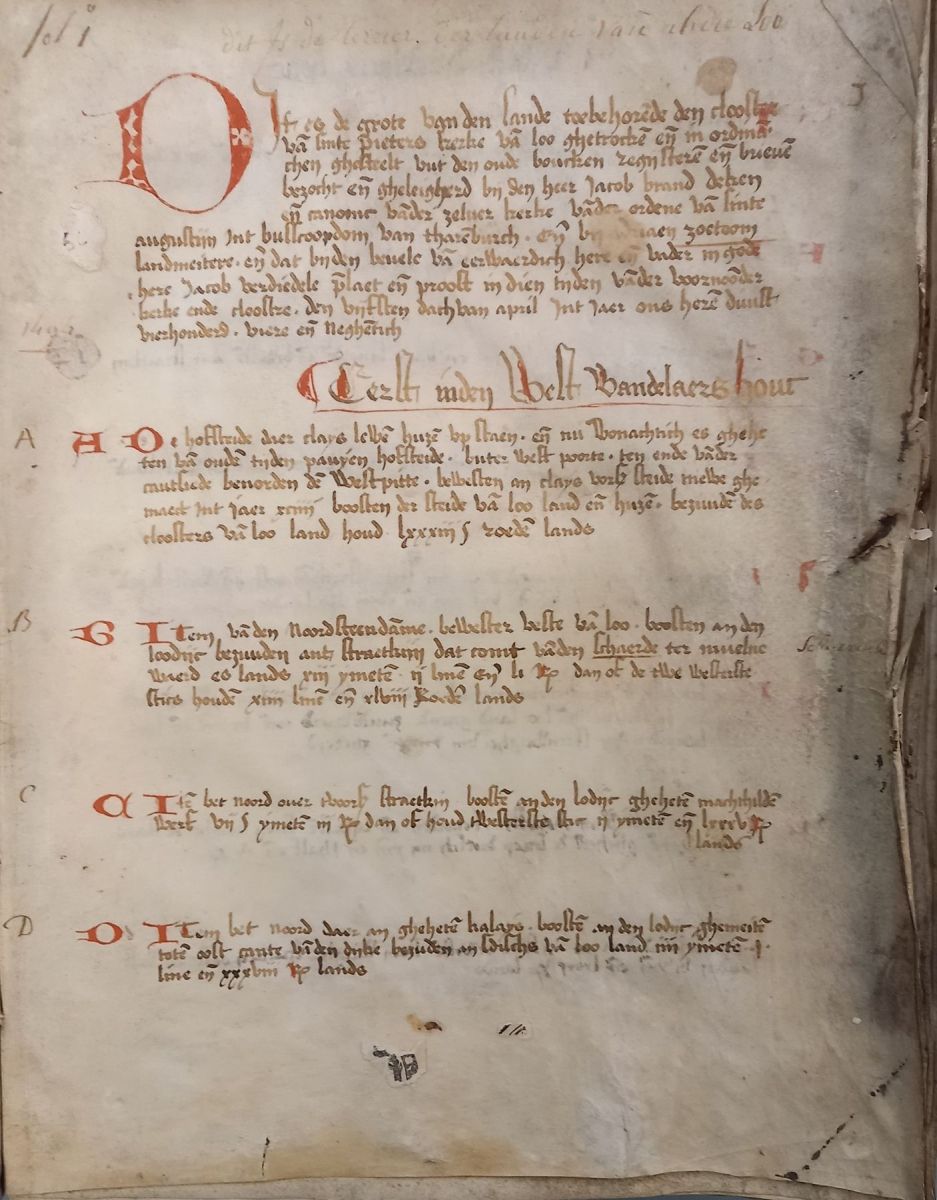 fol 1
dit is de terrier der landen van Loo
Dit es de grote van den lande toebehorēde den clooster
vā sinte pieters kerke vā loo ghetrockē eñ in ordinā
chen ghestelt uut den oude boucken regysterē eñ brievē
bezocht eñ ghelegherd bij den heer Jacob brand deken
eñ canonic vāder zelver kerke vāder ordene vā sinte
augustijn int busscoopdom van tharēburch. eñ bij adriaen zoetoom
landmeitere. eñ dat bijden bevele vā eerwaerdich here eñ vader in gode
here Jacob verdiedele p̄laet eñ proost in dien tyden vāder voornoōder
kerke ende clooster. den vijfsten dach van april Int Jaer ons herē dunst
vierhonderd. viere eñ neghētich
1494
Eerst inden West Wandelaers hout
A
A De hofsteide daer clays lewē huzē up staen. eñ nu Bonachtich es ghehe
ten vā oudē tyden pauyen hofsteide. buter west poorte. ten ende vāder
cautside benorden dē Westpitte. bewesten an clays vors steide niewe ghe
maect int jaer xciiij boosten der steide vā loo land eñ huzē. bezuudē des
cloosters vā loo land houd lxxxiij s roedē lands
B
B Item vāden noordsteendāme. bewester veste vā loo. boosten an den
loodijc bezuuden ant straetkin dat comt vāden schaerde ter nuvelne
waerd es lands xiij ymetē. ij linē eñ li Ro dan of de twe westerste
sties houdē xiiii linē eñ xlviii Roedē lands
C
C Itē bet noord over tvoors straetkin boostē an den lodijc ghehetē machthildē
werf vij s ymetē iij Ro dan of houd twesterste stic ij ymetē eñ lxxxv Ro
lands
D
D Item bet noord daer an ghehetē kalays. boostē an den lodijc ghemeitē
totē oost cante vāden dijke bezudē an sdilchs vā loo land iiij ymetē. j.
line eñ xxxviii Ro lands